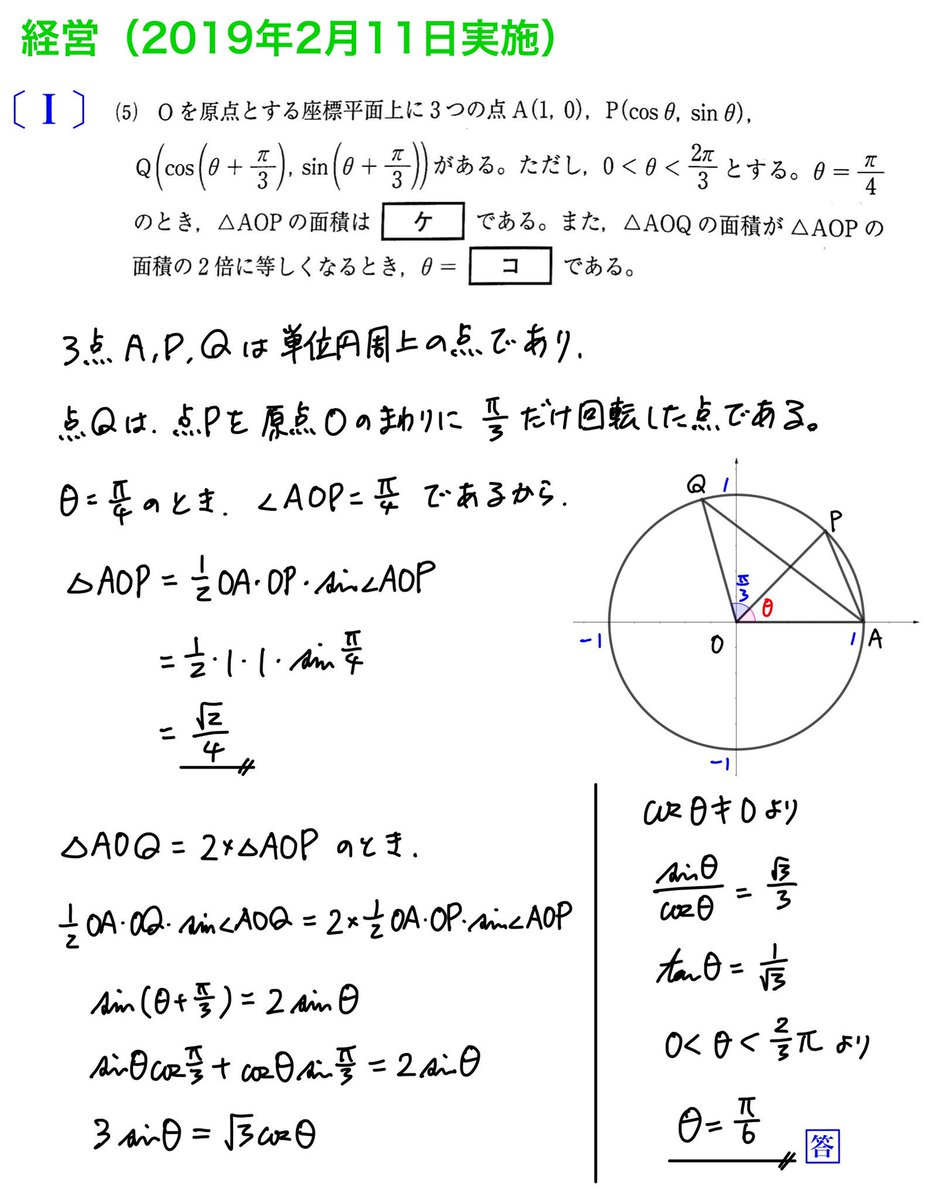 経営（2019年2月11日実施）
〔 I 〕 (5) Oを原点とする座標平面上に3つの点A(1, 0), P(cos θ, sin θ),
Q(cos(θ + π/3), sin(θ + π/3))がある。ただし, 0 < θ < 2π/3 とする。θ = π/4
のとき, △AOPの面積は ケ である。また, △AOQの面積が△AOPの
面積の2倍に等しくなるとき, θ = コ である。
3点 A, P, Q は単位円周上の点であり,
点Qは, 点Pを原点Oのまわりに π/3 だけ回転した点である。
θ = π/4 のとき, ∠AOP = π/4 であるから,
△AOP = 1/2 OA・OP・sin∠AOP
= 1/2・1・1・sin π/4
= √2/4
Q 1
P
π/3 θ
-1 O 1 A
-1
△AOQ = 2×△AOP のとき,
1/2 OA・OQ・sin∠AOQ = 2×1/2 OA・OP・sin∠AOP
sin(θ+π/3) = 2 sin θ
sinθ cos π/3 + cosθ sin π/3 = 2 sinθ
3 sinθ = √3 cosθ
cos θ ≠ 0 より
sinθ/cosθ = √3/3
tanθ = 1/√3
0 < θ < 2/3 π より
θ = π/6 答